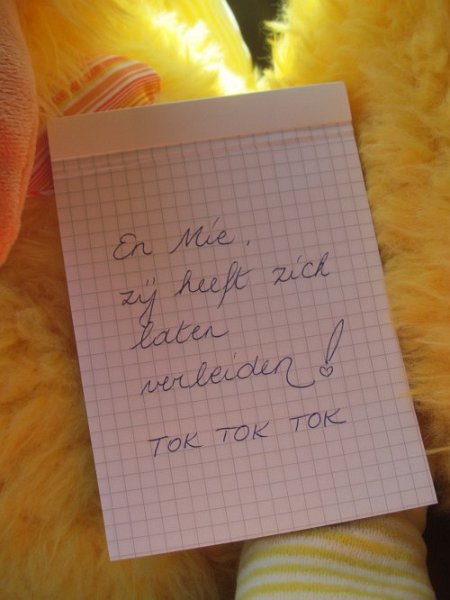 En Mie,
zij heeft zich
laten
verleiden!
TOK TOK TOK